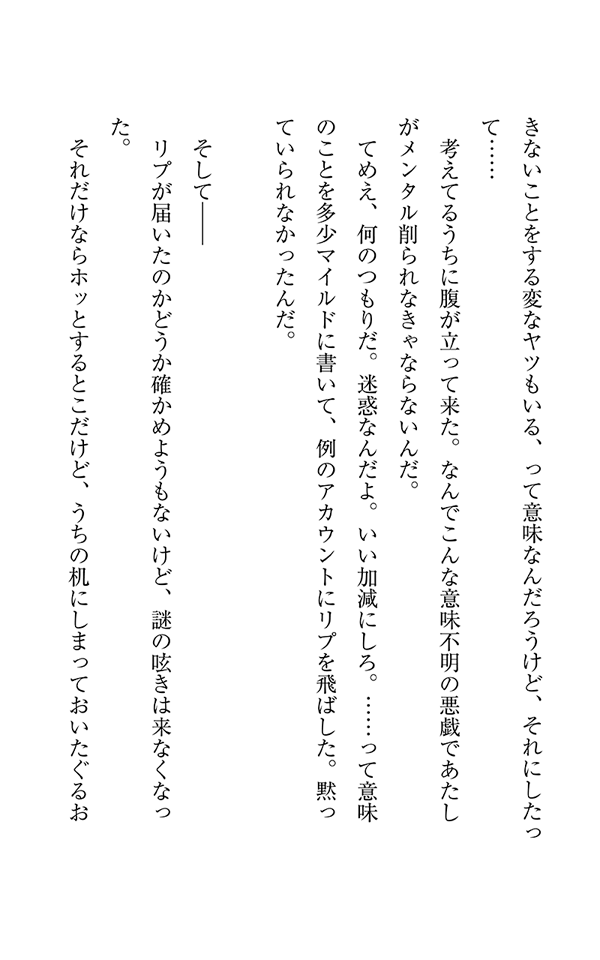 きないことをする変なヤツもいる、って意味なんだろうけど、それにしたっ
て……
　考えてるうちに腹が立って来た。なんでこんな意味不明の悪戯であたし
がメンタル削られなきゃならないんだ。
　てめえ、何のつもりだ。迷惑なんだよ。いい加減にしろ。……って意味
のことを多少マイルドに書いて、例のアカウントにリプを飛ばした。黙っ
ていられなかったんだ。
　そして――
　リプが届いたのかどうか確かめようもないけど、謎の呟きは来なくなっ
た。
　それだけならホッとするとこだけど、うちの机にしまっておいたぐるお